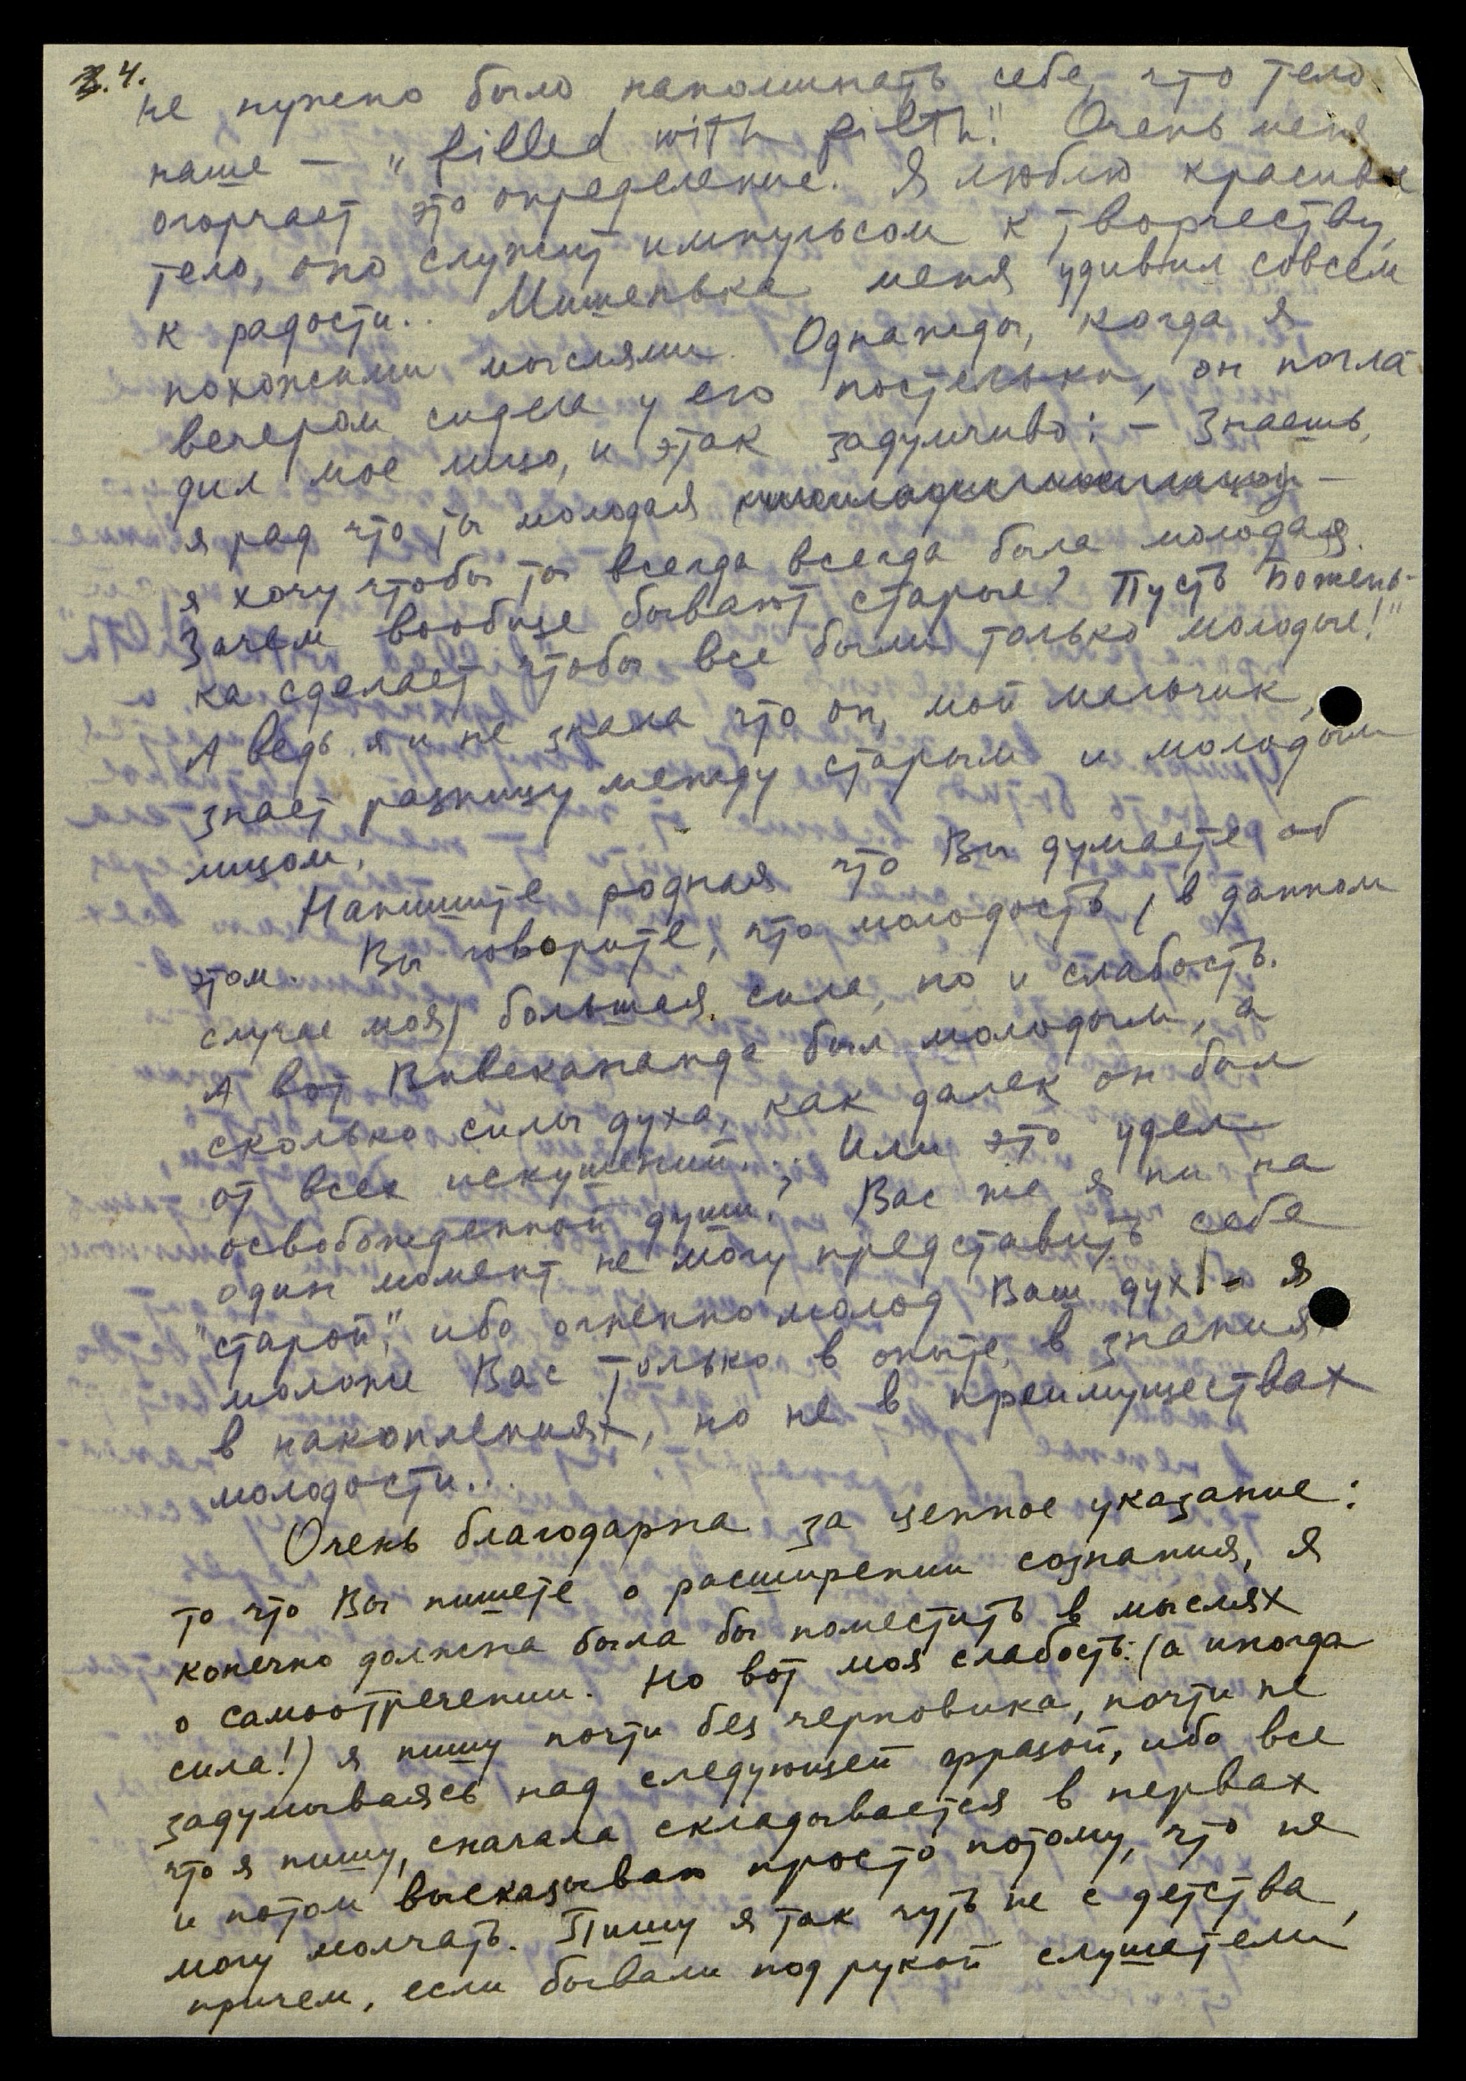 4.
не нужно было напоминать себе, что тело
наше — "filled with filth". Очень меня
огорчает это определение. Я люблю красивое
тело, оно служит импульсом к творчеству,
к радости.. Мишенька меня удивил совсем
похожими мыслями. Однажды, когда я
вечером сидела у его постельки, он погла-
дил мое лицо, и этак задумчиво: — Знаешь,
я рад что ты молодая —
я хочу чтобы ты всегда всегда была молодая.
Зачем вообще бывают старые? Пусть Божень-
ка сделает чтобы все были только молодые!"
А ведь я и не знала что он, мой мальчик,
знает разницу между старым и молодым
лицом.
Напишите родная что Вы думаете об
этом. Вы говорите, что молодость (в данном
случае моя) большая сила, но и слабость.
А вот Вивекананда был молодым, а
сколько силы духа, как далек он был
от всех искушений... Или это удел
освобожденной души? Вас же я ни на
один момент не могу представить себе
"старой", ибо огненно молод Ваш дух! - я
моложе Вас только в опыте, в знаниях
в накоплениях, но не в преимуществах
молодости...
Очень благодарна за ценное указание:
то что Вы пишете о расширении сознания, я
конечно должна была бы поместить в мыслях
о самоотречении. Но вот моя слабость: (а иногда
сила!) я пишу почти без черновика, почти не
задумываясь над следующей фразой, ибо все
что я пишу, сначала складывается в нервах
и потом высказываю просто потому, что не
могу молчать. Пишу я так чуть не с детства,
причем, если бывали под рукой слушатели